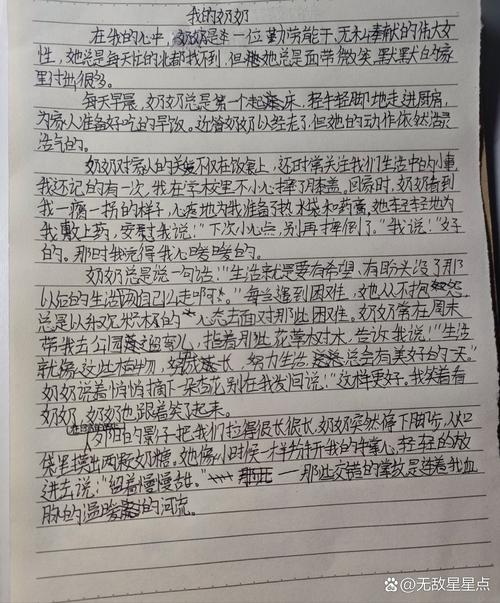 我的奶奶
在我的心中,奶奶是一位勤劳能干、无私奉献的伟大女
性,她总是每天忙的北都找不到,但她总是面带微笑,默默的为家
里付出很多。
每天早晨,奶奶总是第一个起床,轻手轻脚地走进厨房,
为家人准备好吃的早饭。
奶奶对家人的关爱不仅在饭食上,还时常关注我们生活中的小事
我还记的有一次,我在学校里不小心摔了膝盖。回家时,奶奶看到
我一瘸一拐的样子,心疼地为我准备了热水袋和药膏,她轻轻地为
我敷上药,对我说:"下次小心点,别再摔倒了。"我说:"好
的。那时我觉得我心暖暖的。
奶奶总是说一句话:"生活就是要有希望、有盼头没了那
以后的生活自己么走呵。"每当遇到困难,她从不抱怨,
总是以积极的心态去面对那些困难。奶奶常在周末
带我去公园遛弯儿,指着那些花草树木,告诉我说:"生活
就像这些植物,努力成长,努力生活,总会有美好的一天。"
奶奶说着悄悄摘下一朵杏花,别在我发间说:"这样更好。我笑着看
奶奶,奶奶也跟着笑了起来。
夕阳的影子把我们拉得很长很长,奶奶突然停下脚步,从口
袋里摸出两颗奶糖。她像小时候一样掰开我的手掌心,轻轻的放
进去说:"留着慢慢甜。"——那些交错的掌纹是连着我血
脉的温暖的河流。
@无敌星星点